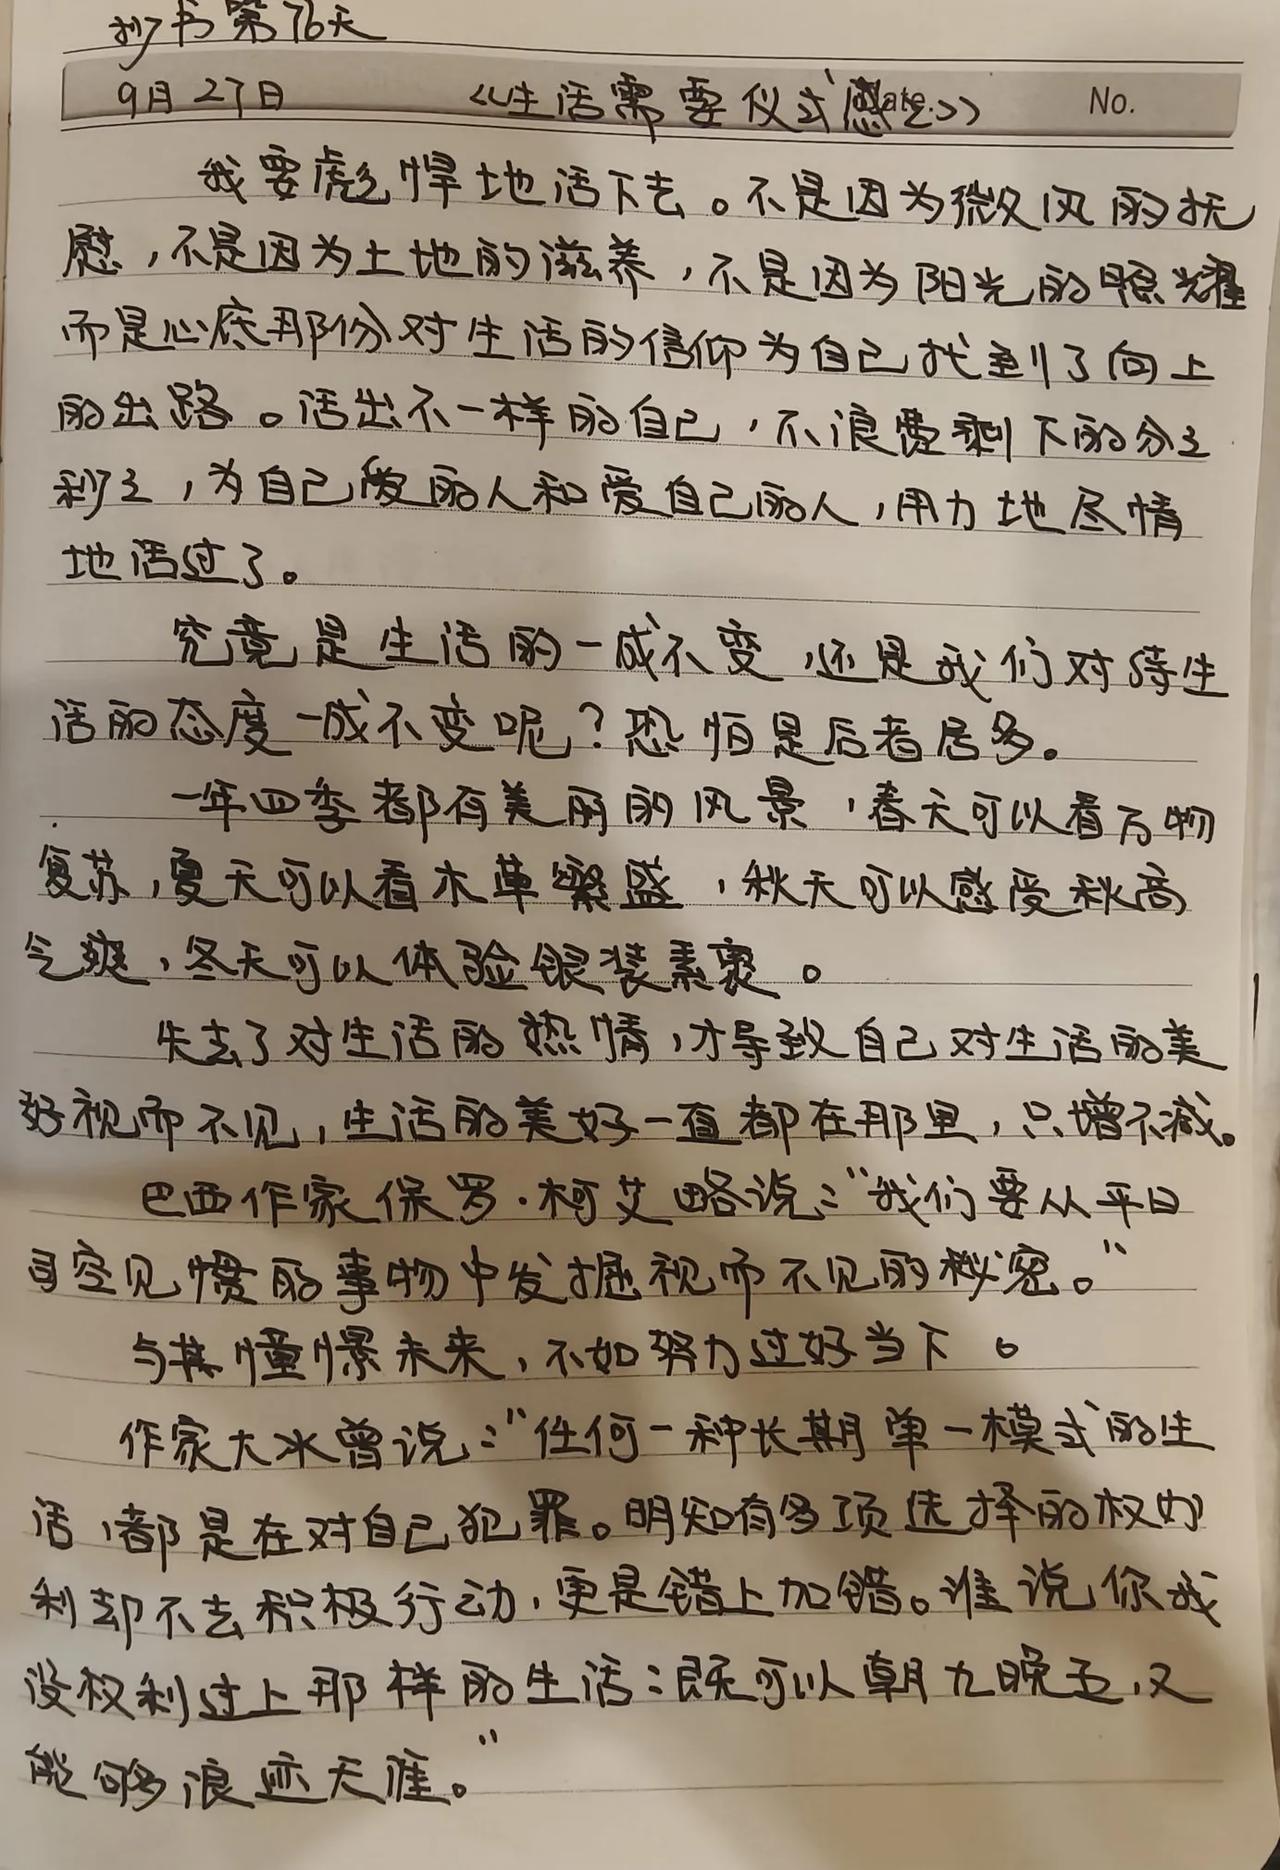 抄书第76天
9月27日 《生活需要仪式感2》 Date. No.
我要彪悍地活下去。不是因为微风的抚
慰，不是因为土地的滋养，不是因为阳光的照耀
而是心底那份对生活的信仰为自己找到了向上
的出路。活出不一样的自己，不浪费剩下的分々
秒々，为自己爱的人和爱自己的人，用力地尽情
地活过了。
究竟是生活的一成不变，还是我们对待生
活的态度一成不变呢？恐怕是后者居多。
一年四季都有美丽的风景，春天可以看万物
复苏，夏天可以看木草繁盛，秋天可以感受秋高
气爽，冬天可以体验银装素裹。
失去了对生活的热情，才导致自己对生活的美
好视而不见，生活的美好一直都在那里，只增不减。
巴西作家保罗·柯艾略说：“我们要从平日
司空见惯的事物中发掘视而不见的秘密。”
与其憧憬未来，不如努力过好当下。
作家大冰曾说：“任何一种长期单一模式的生
活，都是在对自己犯罪。明知有多项选择的权
利却不去积极行动，更是错上加错。谁说你我
没权利过上那样的生活：既可以朝九晚五，又
能够浪迹天涯。”